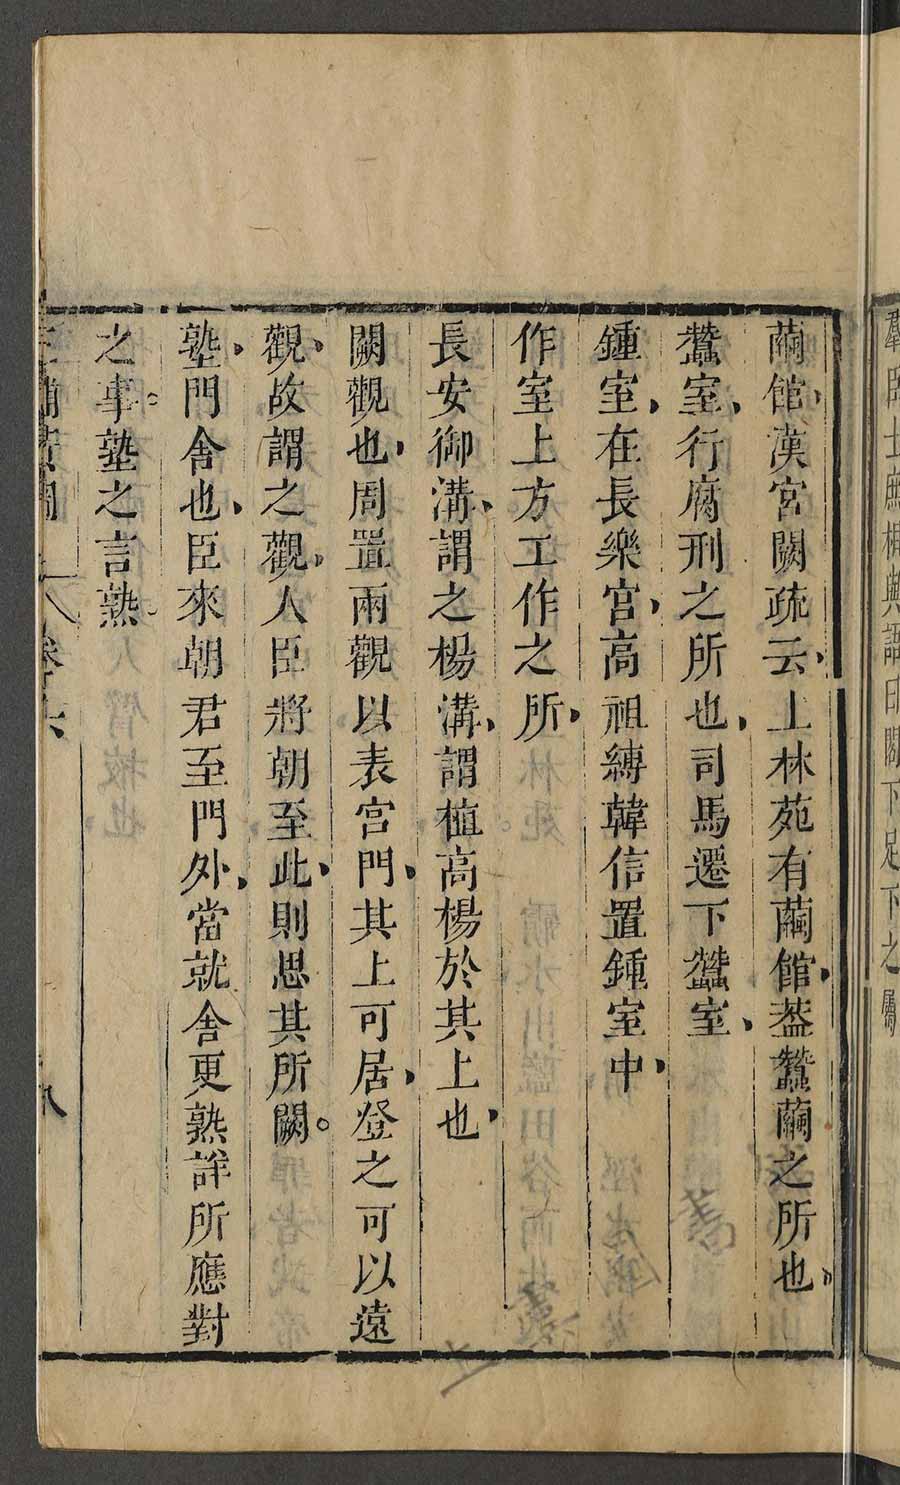 繭館漢宮闕疏云上林苑有繭館葢蠶繭之所也
蠶室行腐刑之所也司馬遷下蠶室
鍾室在長樂宮高祖縛韓信置鍾室中
作室上方工作之所
長安御溝謂之楊溝謂植高楊於其上也
闕觀也周置兩觀以表宮門其上可居登之可以遠
觀故謂之觀人臣將朝至此則思其所闕。
塾門舍也臣來朝君至門外當就舍更熟詳所應對
之事。塾之言熟
三輔黃圖
卷之六
八